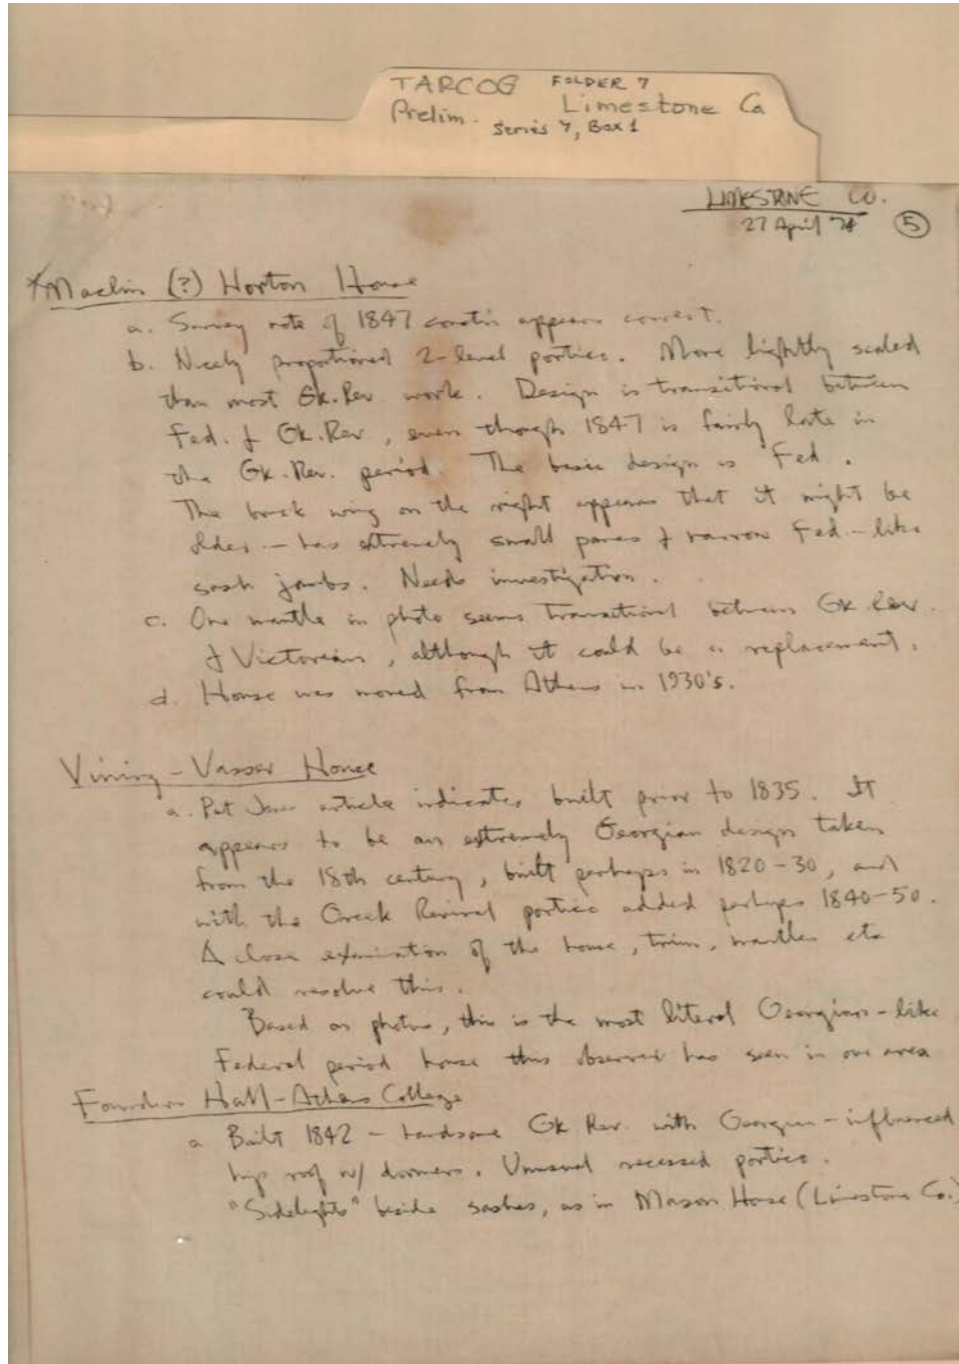 TARCOG FOLDER 7
Prelim. Limestone Co
Series 7, Box 1
LIMESTONE CO.
27 April 74 (5)
*Maclin (?) Horton House
a. Survey note of 1847 constn appears correct.
b. Nicely proportioned 2-level portico. More lightly scaled
than most Gk. Rev. work. Design is transitional between
Fed. & Gk. Rev, even though 1847 is fairly late in
the Gk. Rev. period. The basic design is Fed.
The brick wing on the right appears that it might be
older – has extremely small panes & narrow Fed.-like
sash jambs. Needs investigation.
c. One mantle in photo seems transitional between Gk. Rev.
& Victorian, although it could be a replacement.
d. House was moved from Athens in 1930's.
Vining - Vasser House
a. Pat Jones article indicates built prior to 1835. It
appears to be an extremely Georgian design taken
from the 18th century, built perhaps in 1820-30, and
with the Greek Revival portico added perhaps 1840-50.
A close examination of the house, trim, mantles etc
could resolve this.
Based on photos, this is the most literal Georgian-like
Federal period house this observer has seen in our area
Founders Hall - Athens College
a Built 1842 – handsome Gk Rev. with Georgian-influenced
hip roof w/ dormers. Unusual recessed portico.
"Sidelights" beside sashes, as in Mason House (Limestone Co.)